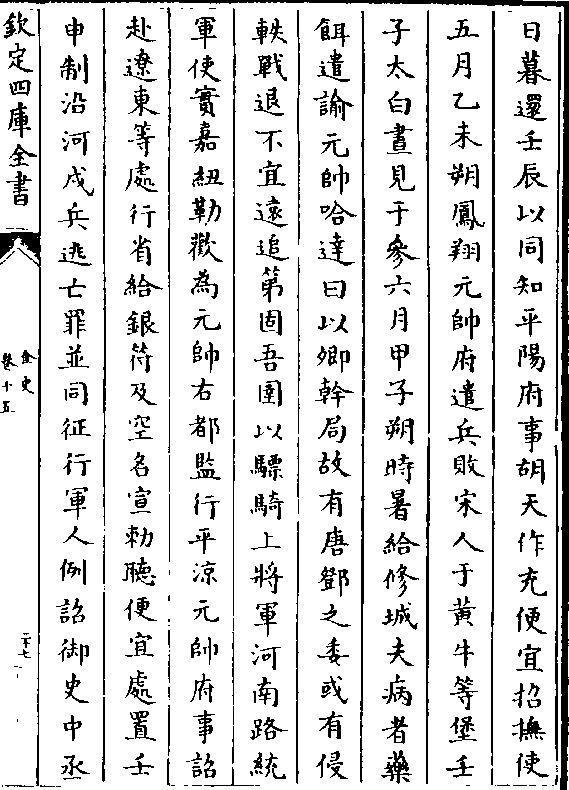 日暮還壬辰以同知平陽府事胡天作充便宜招撫使
五月乙未朔鳳翔元帥府遣兵敗宋人于黃牛等堡壬
子太白晝見于參六月甲子朔時暑給修城夫病者藥
餌遣諭元帥哈達曰以卿幹局故有唐鄧之委或有侵
軼戰退不宜遠追第固吾圉以驃騎上將軍河南路統
軍使實嘉紐勒歡為元帥右都監行平涼元帥府事詔
赴遼東等處行省給銀符及空名宣勑聽便宜處置壬
申制沿河戍兵逃亡罪並同征行軍人例詔御史中丞
欽定四庫全書
金史
卷十五
二十七